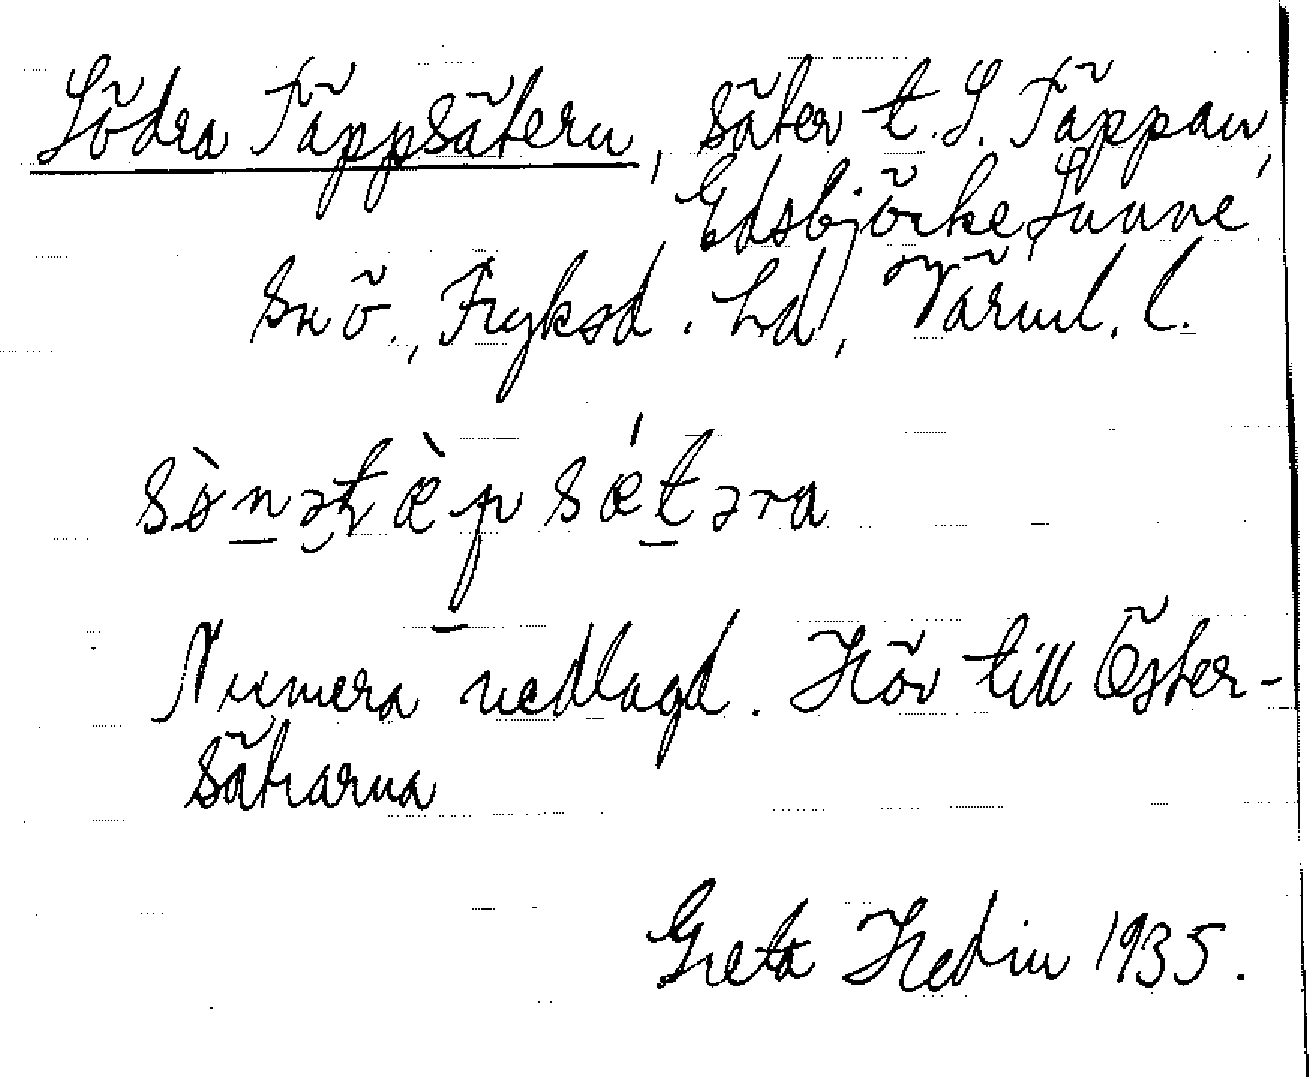 Södra Täppsätern, säter t. S. Täppan,
Edsbjörke, Sunne
snö., Fryksd. hd, Värml. l.
sònətæ̀p sǽtəra
Numera nedlagd. Hör till Öster-
sätrarna
Greta Hedin 1935.